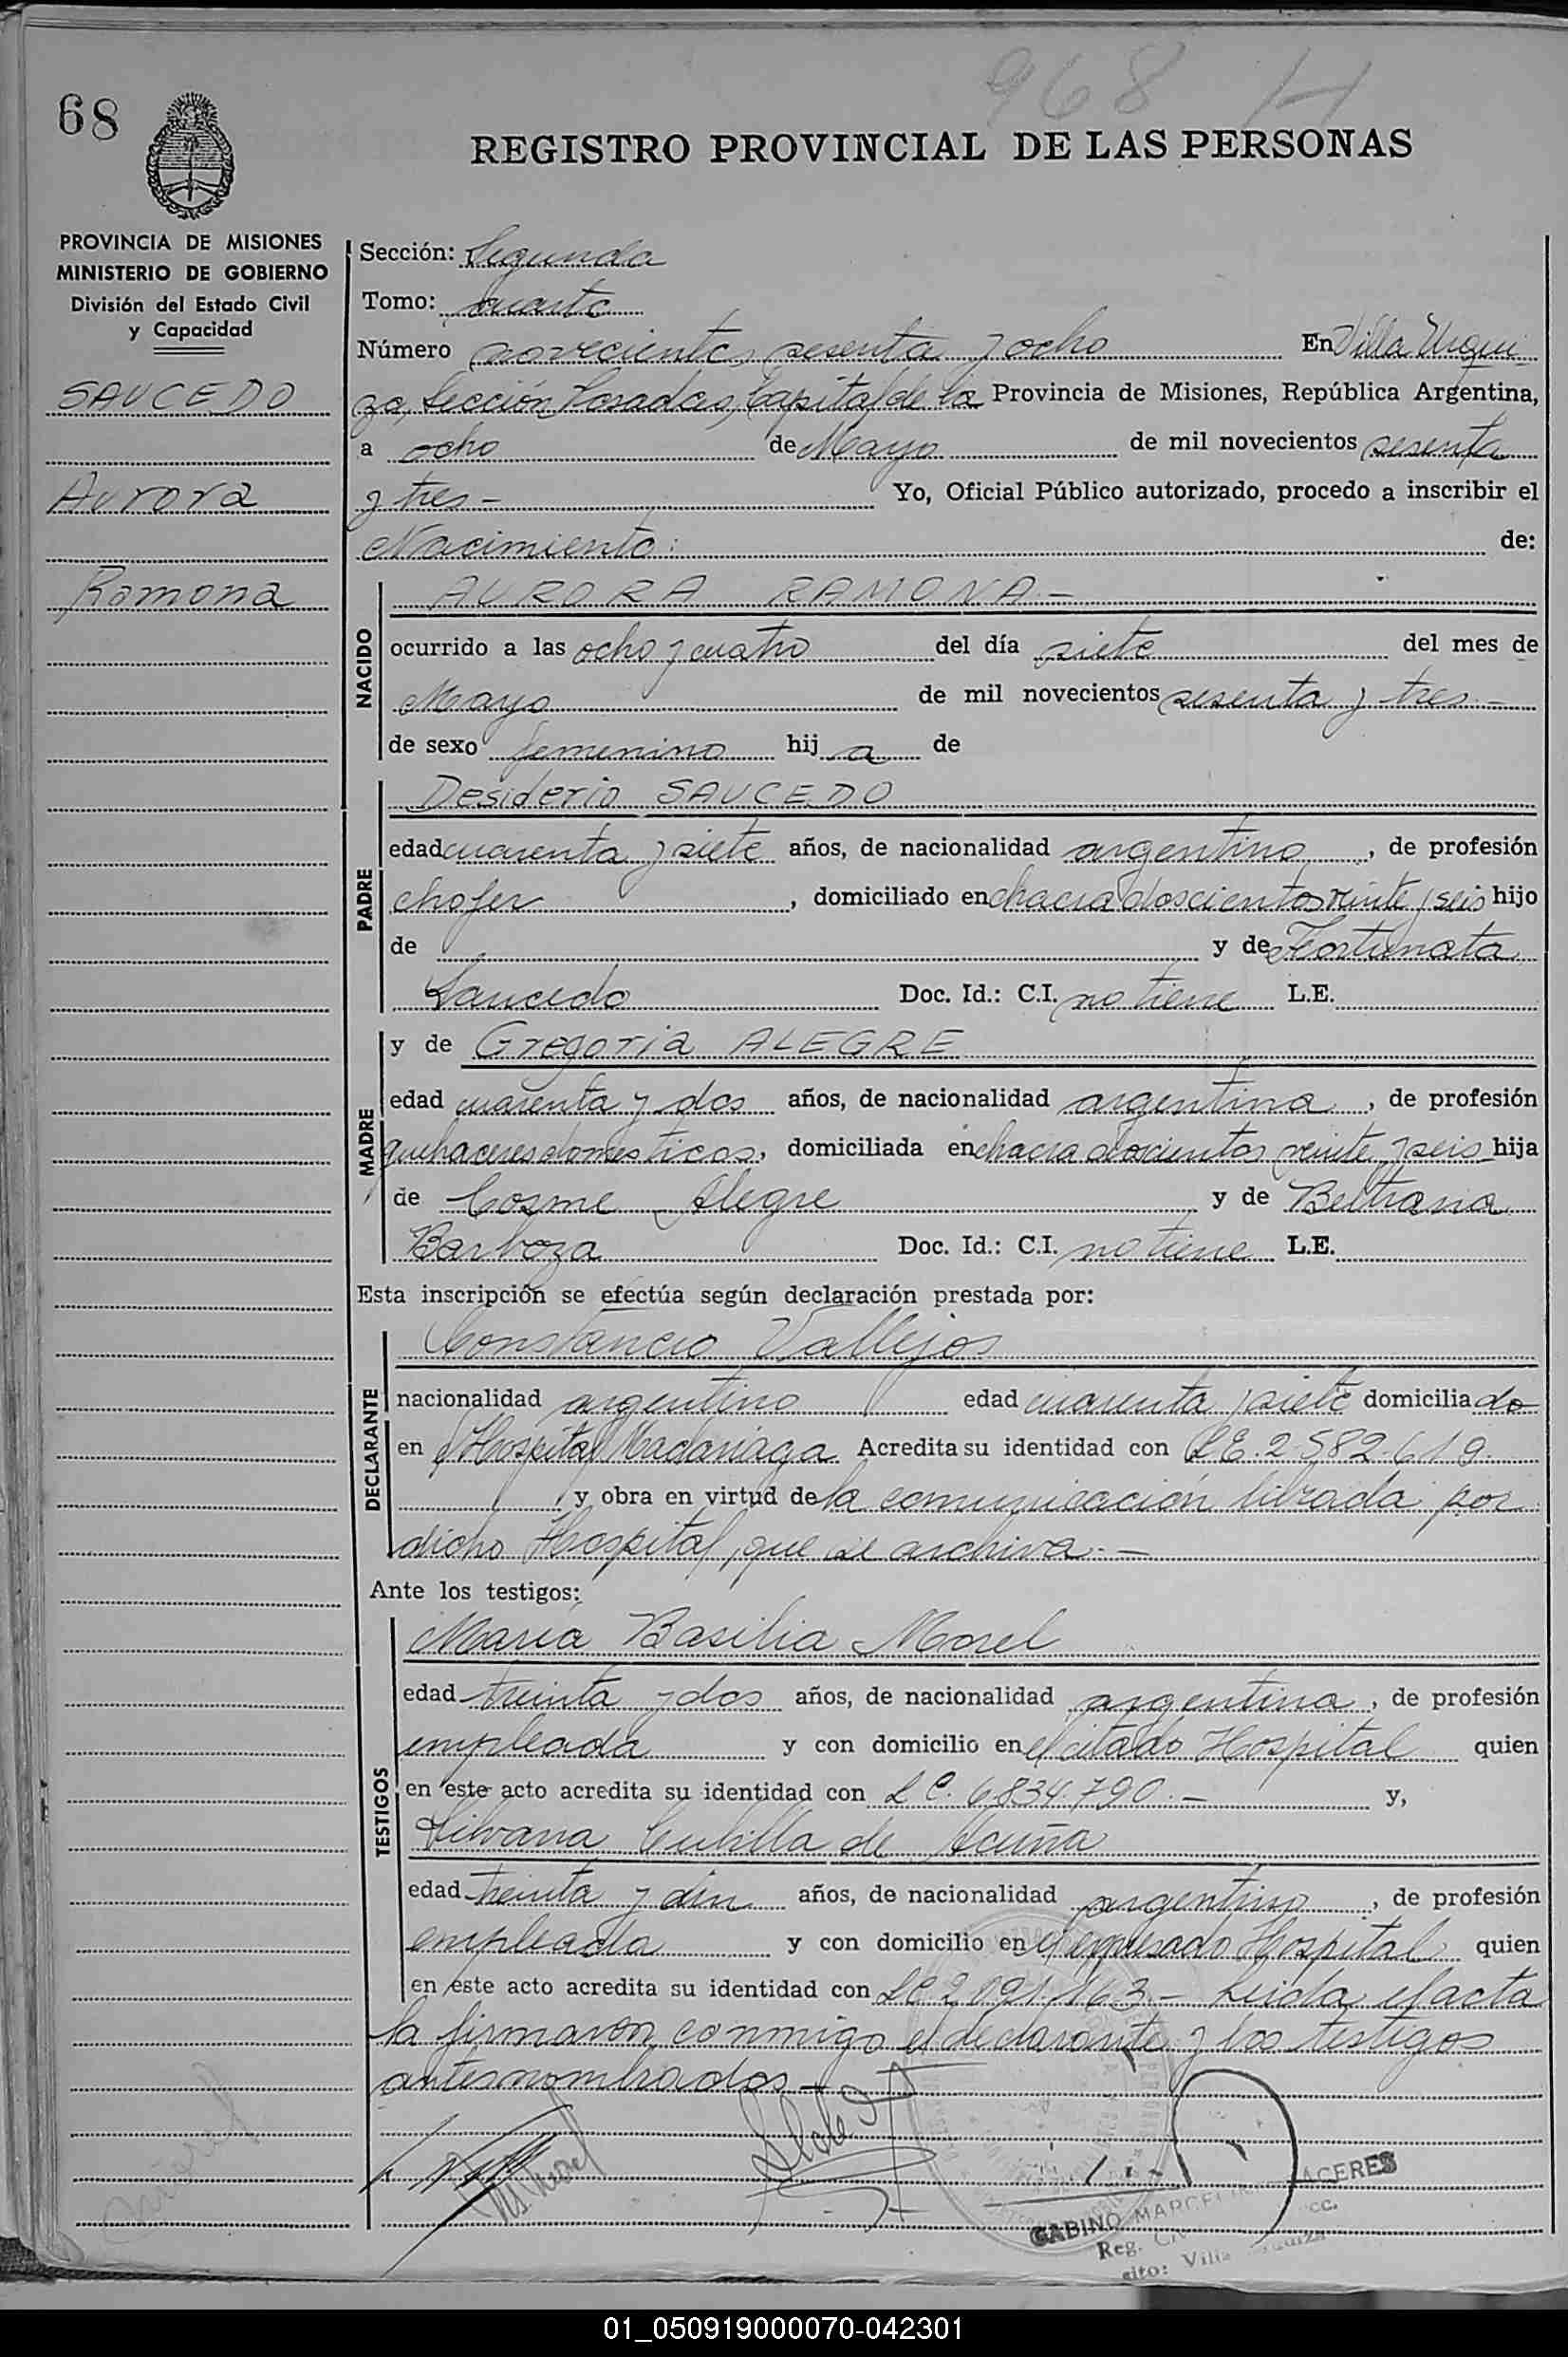 968 H
68
REGISTRO PROVINCIAL DE LAS PERSONAS
PROVINCIA DE MISIONES
MINISTERIO DE GOBIERNO
División del Estado Civil
y Capacidad
SAUCEDO
Aurora
Ramona
Sección: Segunda
Tomo: cuarto
Número novecientos sesenta y ocho En Villa Urqui
za, Sección Posadas, Capital de la Provincia de Misiones, República Argentina,
a ocho de Mayo de mil novecientos sesenta
y tres - Yo, Oficial Público autorizado, procedo a inscribir el
Nacimiento: de:
NACIDO
AURORA RAMONA -
ocurrido a las ocho y cuatro del día siete del mes de
Mayo de mil novecientos sesenta y tres -
de sexo femenino hij a de
PADRE
Desiderio SAUCEDO
edad cuarenta y siete años, de nacionalidad argentino, de profesión
chofer, domiciliado en chacra doscientos veinte y seis hijo
de y de Fortunata
Saucedo Doc. Id.: C.I. no tiene L.E.
MADRE
y de Gregoria ALEGRE
edad cuarenta y dos años, de nacionalidad argentina, de profesión
quehaceres domesticos, domiciliada en chacra doscientos veinte y seis hija
de Cosme Alegre y de Beltrana
Barboza Doc. Id.: C.I. no tiene L.E.
Esta inscripción se efectúa según declaración prestada por:
DECLARANTE
Constancio Vallejos
nacionalidad argentino edad cuarenta y siete domiciliado
en Hospital Madariaga Acredita su identidad con L.E. 2.582.619.
y obra en virtud de la comunicación librada por
dicho Hospital, que se archiva. -
Ante los testigos:
TESTIGOS
María Basilia Morel
edad treinta y dos años, de nacionalidad argentina, de profesión
empleada y con domicilio en el citado Hospital quien
en este acto acredita su identidad con L C. 6.834.790. - y,
Silvana Cubilla de Acuña
edad treinta y años, de nacionalidad argentina, de profesión
empleada y con domicilio en el expresado Hospital quien
en este acto acredita su identidad con L C 2.091.163 - Leida el acta
la firmaron conmigo el declarante y los testigos
antesnombrados -
GABINO MARCEL ACERES
Reg.
sito: Villa
01_050919000070-042301